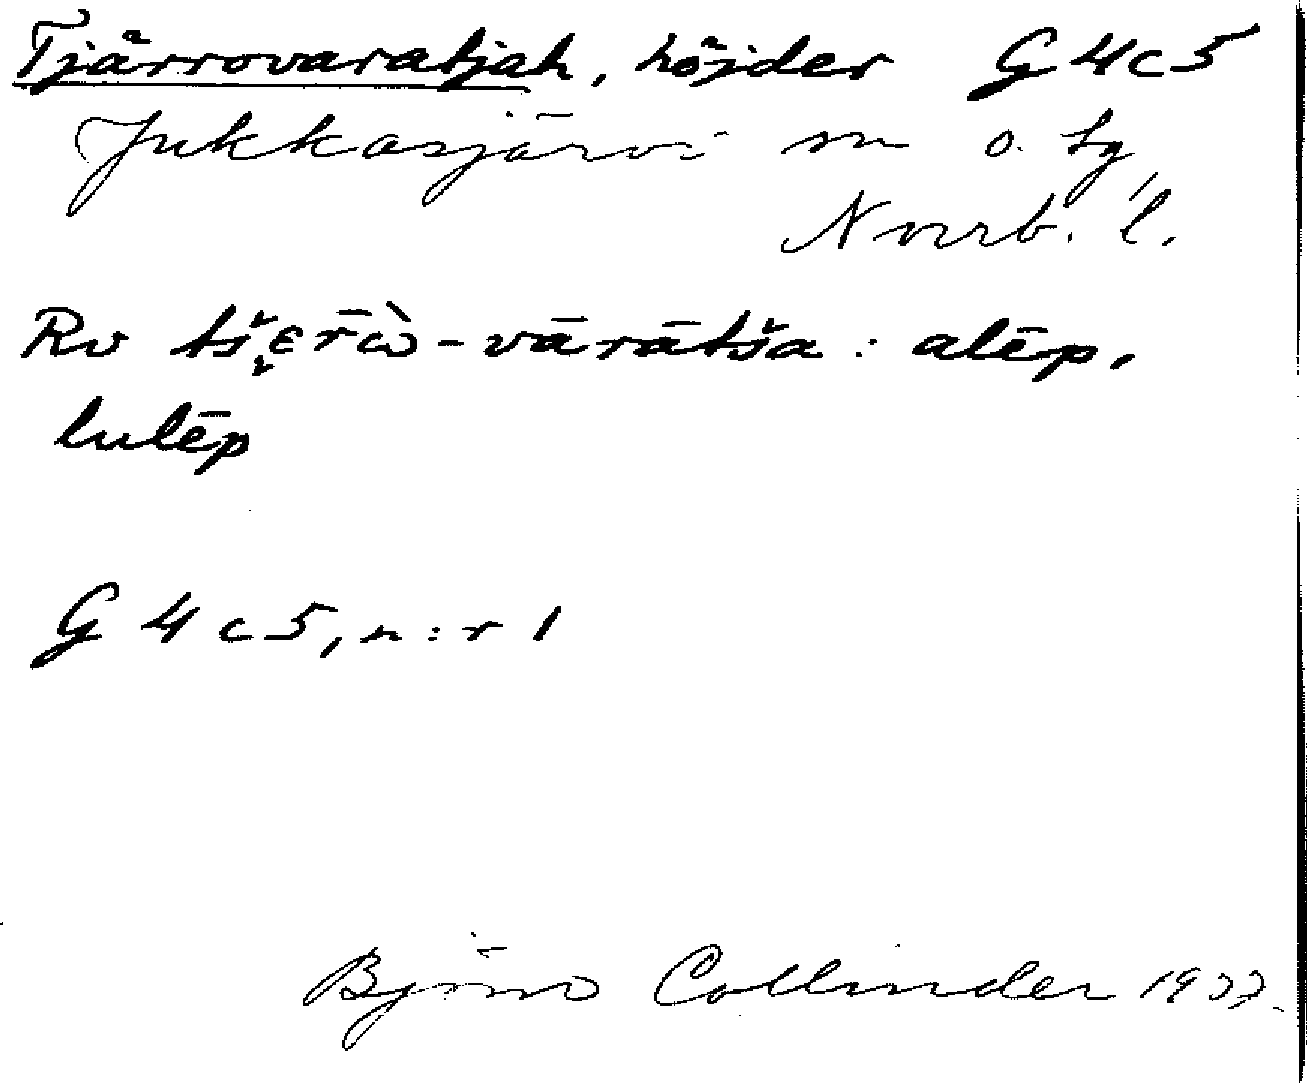 Tjärrovaratjah, höjder G4c5
Jukkasjärvi sn o. tg,
Norrb. l.
Rv tš̬ɛr̄ὼ-vārātša : alēp,
lulēp
G 4 c 5, n:r 1
Björn Collinder 1933.